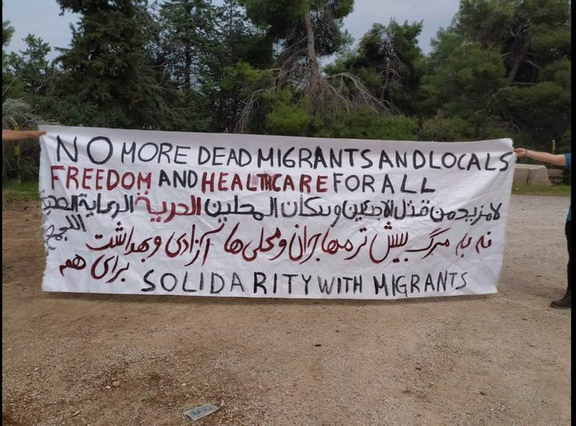 NO MORE DEAD MIGRANTS AND LOCALS
FREEDOM AND HEALTHCARE FOR ALL
لا مزيد من قتل الاجئين وسكان المحليين الحرية الرعاية الصحية
للجميع
نه به مرگ بیش تر مهاجران و محلی ها آزادی و بهداشت
برای همه
SOLIDARITY WITH MIGRANTS